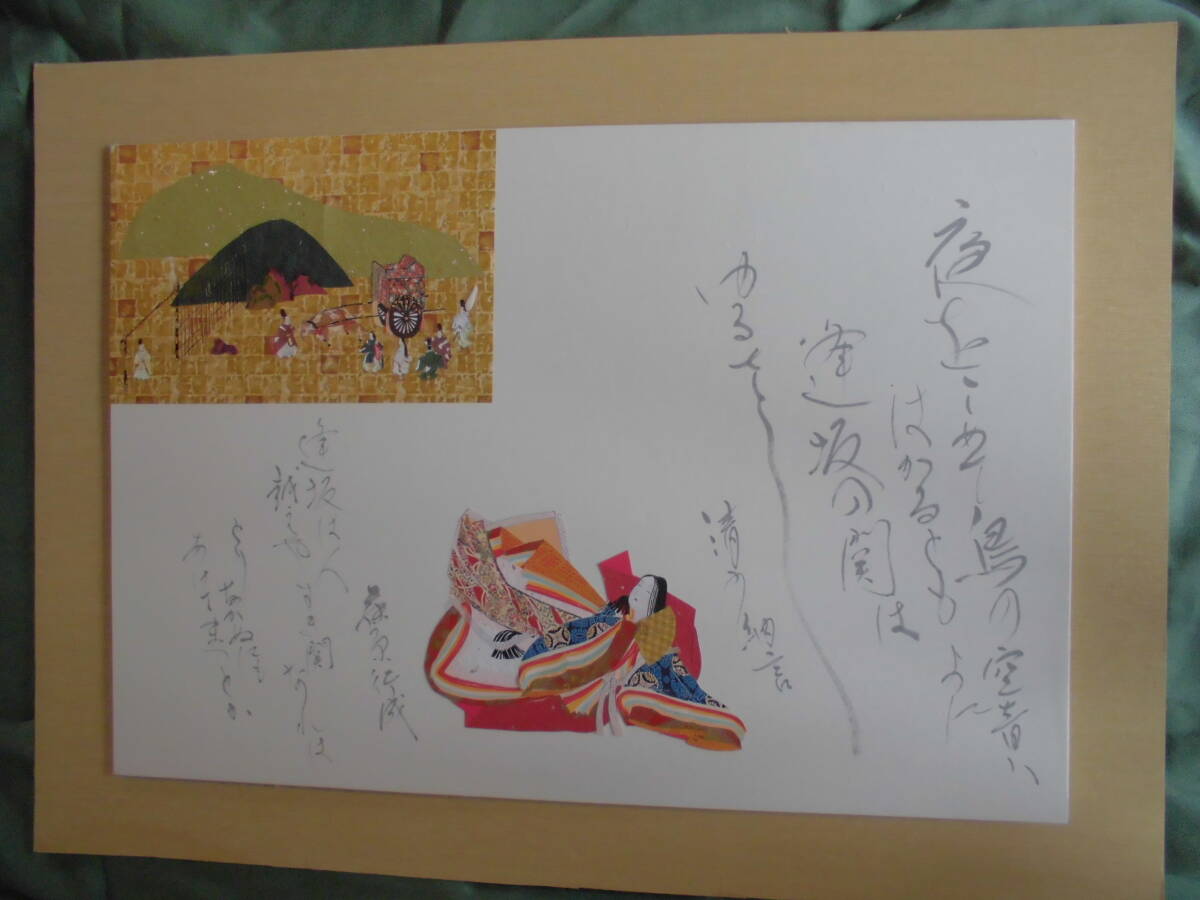 夜をこめて鳥の空音ハ
はかるとも よに
逢坂の関は
ゆるさし
清少納言
藤原行成
逢坂は人
越えやすき関なれは
とりなかぬにも
あけて待つとか